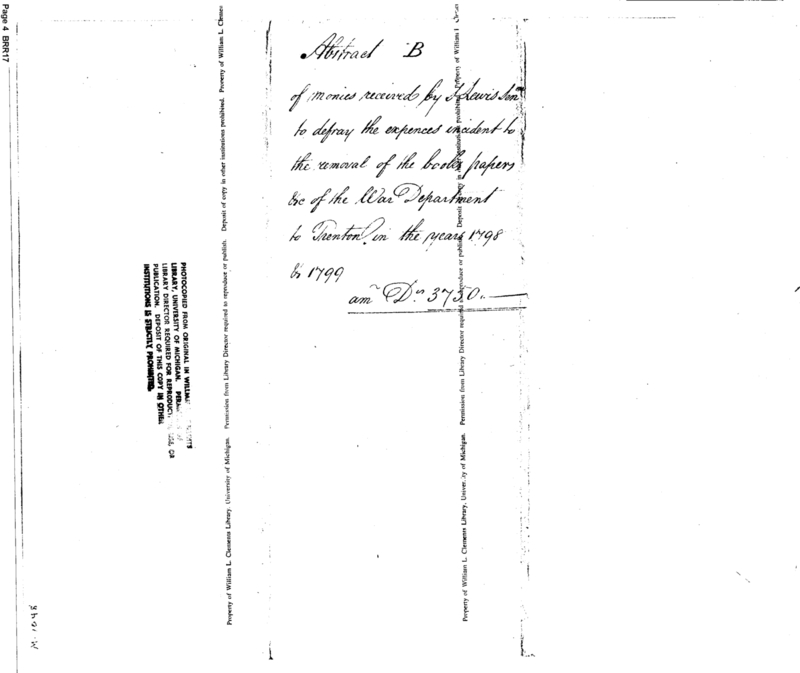 Page 4 BRR17
Abstract B
of monies received by J Lewis Senr
to defray the expences incident to
the removal of the books papers
&c of the War Department
to Trenton in the years 1798
& 1799
amt Drs 3750.
PHOTOCOPIED FROM ORIGINAL IN
LIBRARY, UNIVERSITY OF MICHIGAN.
LIBRARY DIRECTOR REQUIRED FOR OR
PUBLICATION. DEPOSIT OF THIS COPY IN OTHER
INSTITUTIONS IS STRICTLY PROHIBITED.
Property of William L. Clements Library, University of Michigan. Permission from Library Director required to reproduce or publish. Deposit of copy in other institutions prohibited. Property of William L. Clements
Property of William L. Clements Library, University of Michigan. Permission from Library Director required to reproduce or publish. Deposit of copy in other institutions prohibited. Property of William L. Clements
M-1048